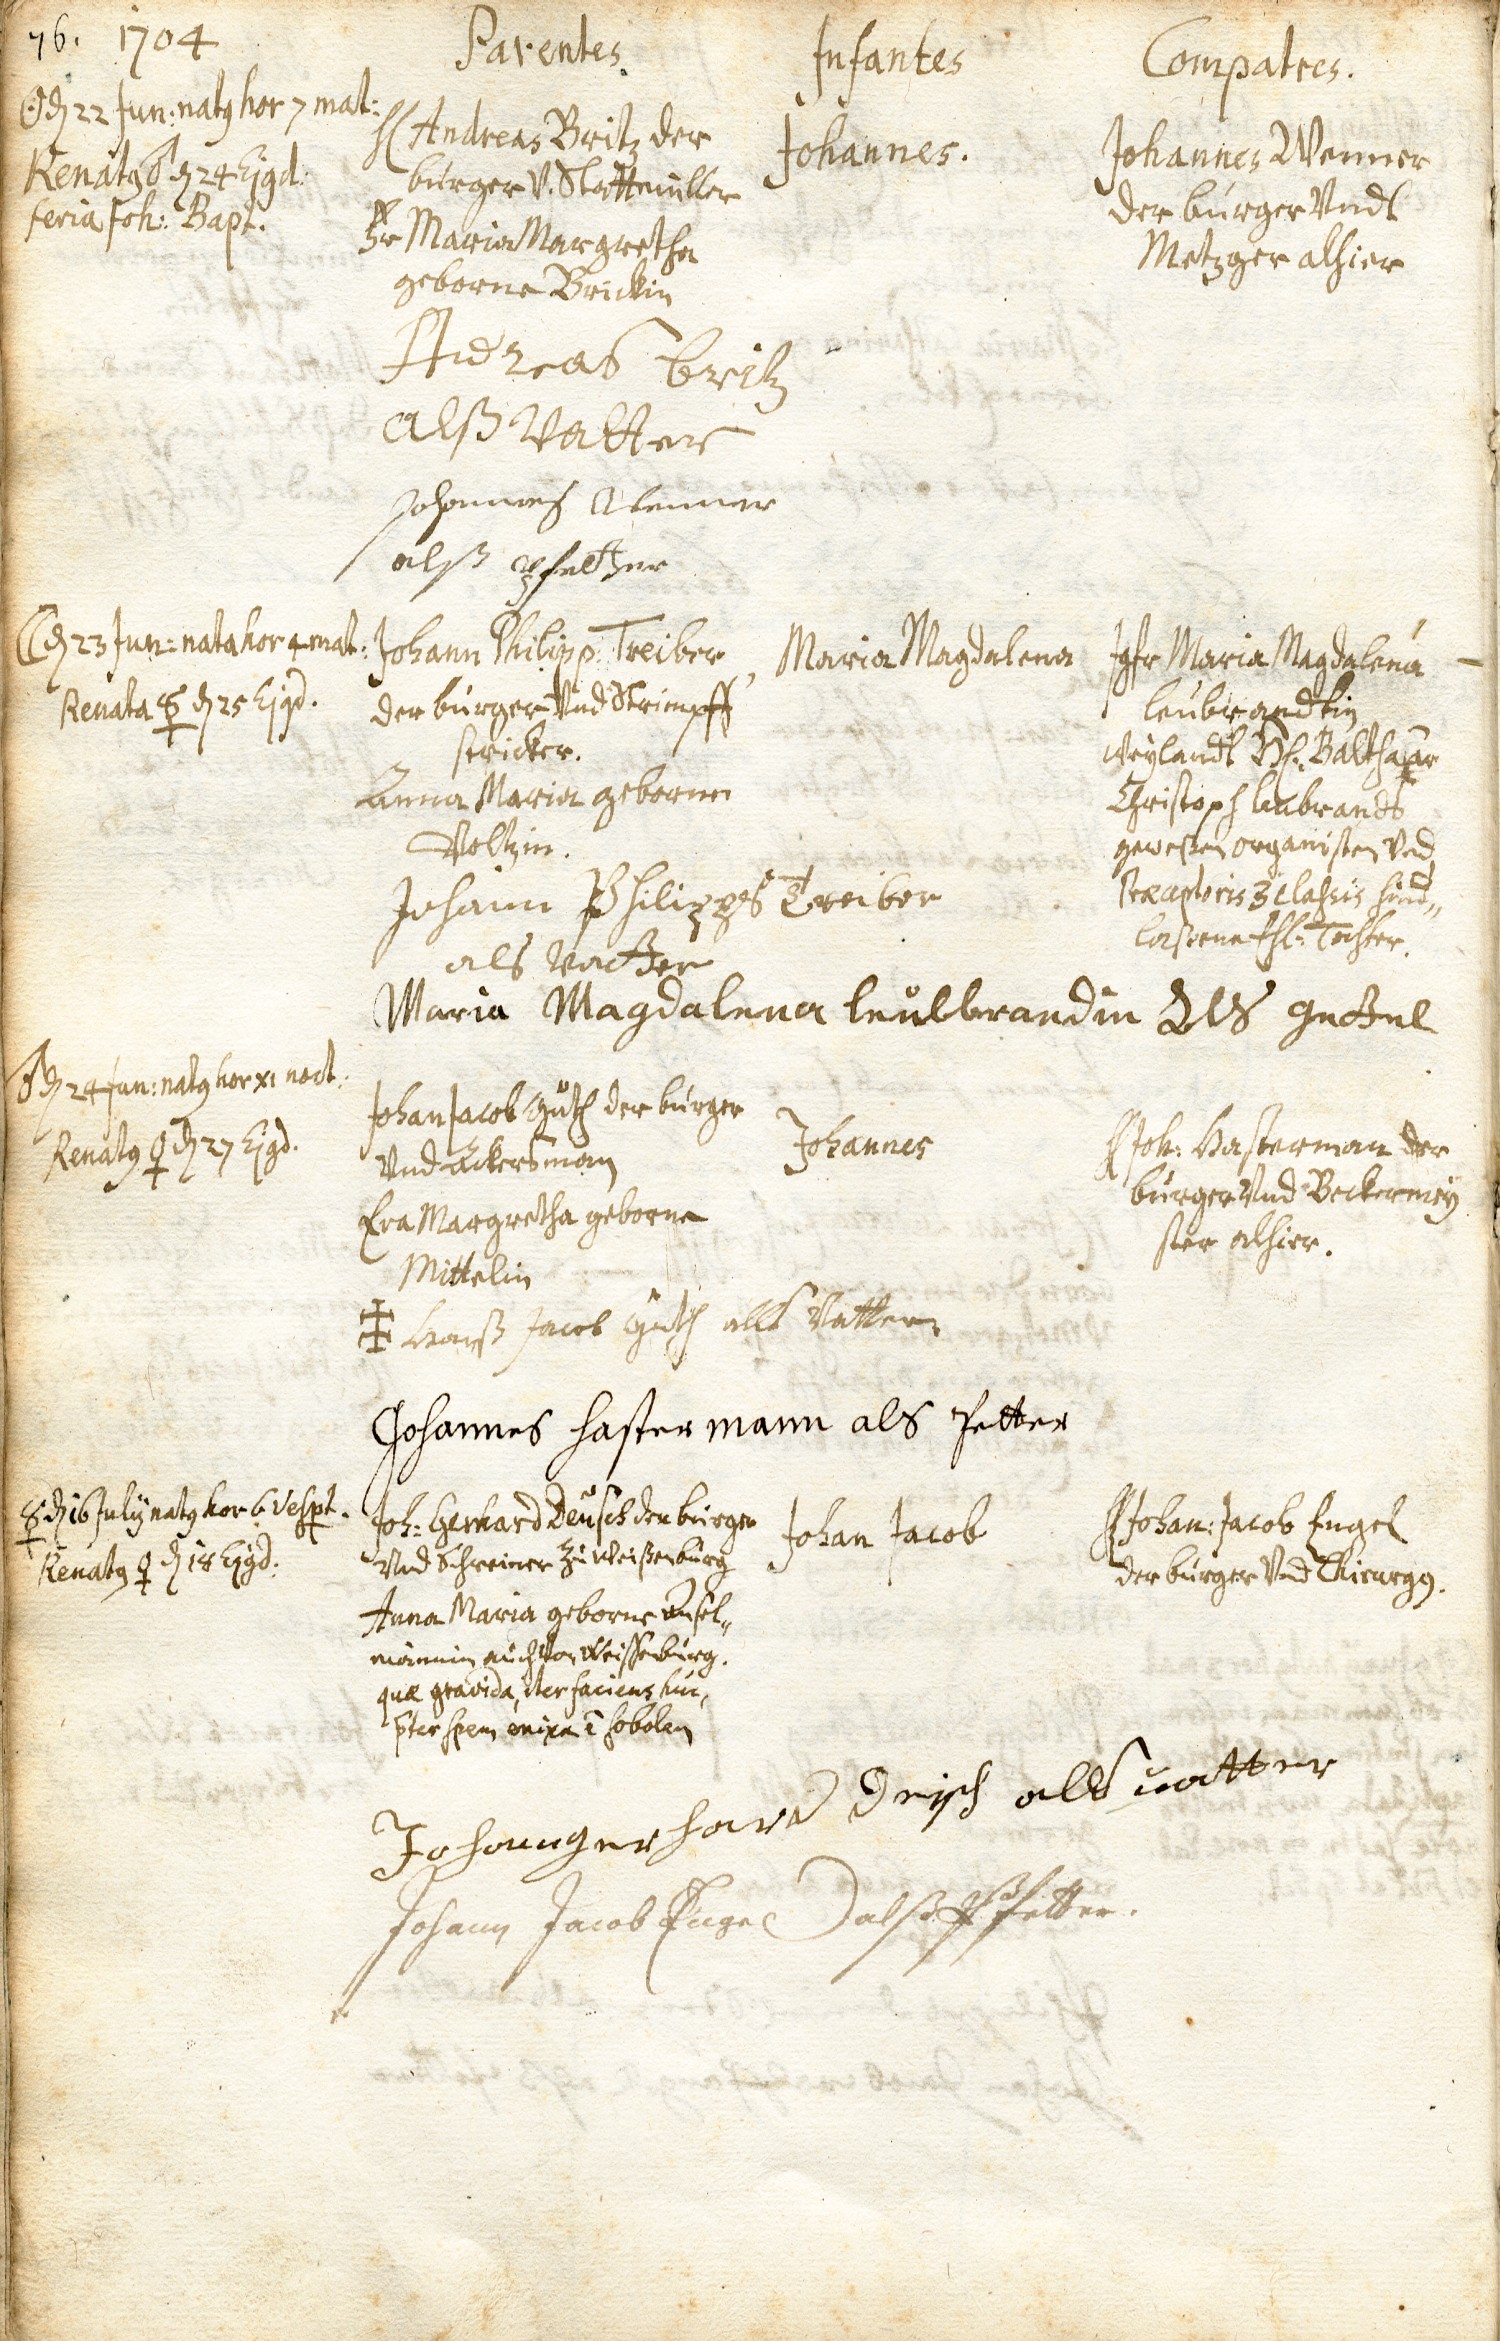 76. 1704
Parentes.
Infantes
Compatres.
☉ d 22 Jun: natꝯ hor 7 mat:
Renatꝯ ♂ d 24 Ejgd:
feria Joh: Bapt.
H Andreas Britz der
burger v. Stattmüller
Fr Maria Margretha
geborne Brickin
Johannes.
Johannes Wenner
der burger Vndt
Metzger alhier
Andreas britz
alß Vatter
Johannes Wenner
alß pfetter
☾ d 23 Jun: nata hor 4 mat:
Renata ☿ d 25 Ejgd.
Johann Philipp: Treiber
der burger Vnd Strimpff
stricker.
Anna Maria geborne
Voltzin.
Maria Magdalena
Jgfr Maria Magdalena
leubrandtin
weylandt H. Balthasar
Christoph leubrandts
geweßen organisten Vnd
Præceptoris 3 classis hind„
laßene Ehl: Tochter.
Johann Philippes Treiber
als vatter
Maria Magdalena leullbrandin Als gettel
♂ d 24 Jun: natꝯ hor XI noct:
Renatꝯ ♀ d 27 Ejgd.
Johan Jacob Guth der burger
Vnd ackersman
Eva Margretha geborne
Mittelin
Johannes
H Joh: Hasterman der
burger Vnd Beckermey
ster alhier.
‡ Hanß Jacob Guth alls Vatter
Johannes hastermann als Petter
☿ d 16 July natꝯ hor 6 Vespt.
Renatꝯ ♀ d 18 Ejgd:
Joh: Gerhard Deusch der burger
Vnd Schreiner zu Weißenburg
Anna Maria geborne Ansel„
männin auch von Weissenburg.
quæ gravida, iter faciens huc,
pter spem enixa ē sobolem
Johan Jacob
H Johan: Jacob Engel
der burger Vnd Chirurgꝯ.
Johanngerhard Deisch alls vatter
Johann Jacob Engel alß Pfetter.